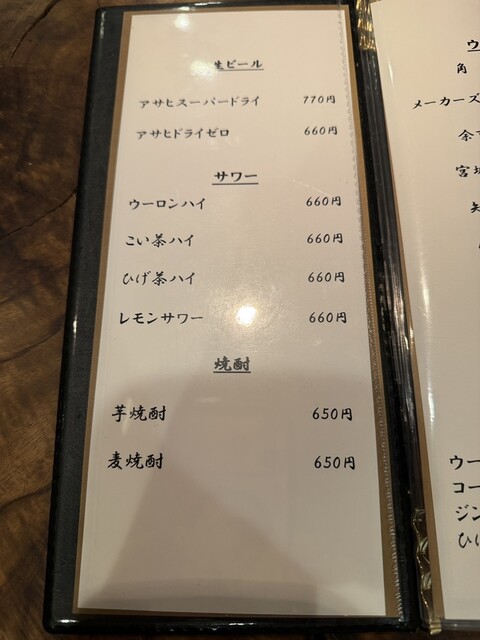 生ビール
アサヒスーパードライ 770円
アサヒドライゼロ 660円
サワー
ウーロンハイ 660円
こい茶ハイ 660円
ひげ茶ハイ 660円
レモンサワー 660円
焼酎
芋焼酎 650円
麦焼酎 650円
ウ
角
メーカーズ
余
宮城
ウー
コー
ジン
ひげ